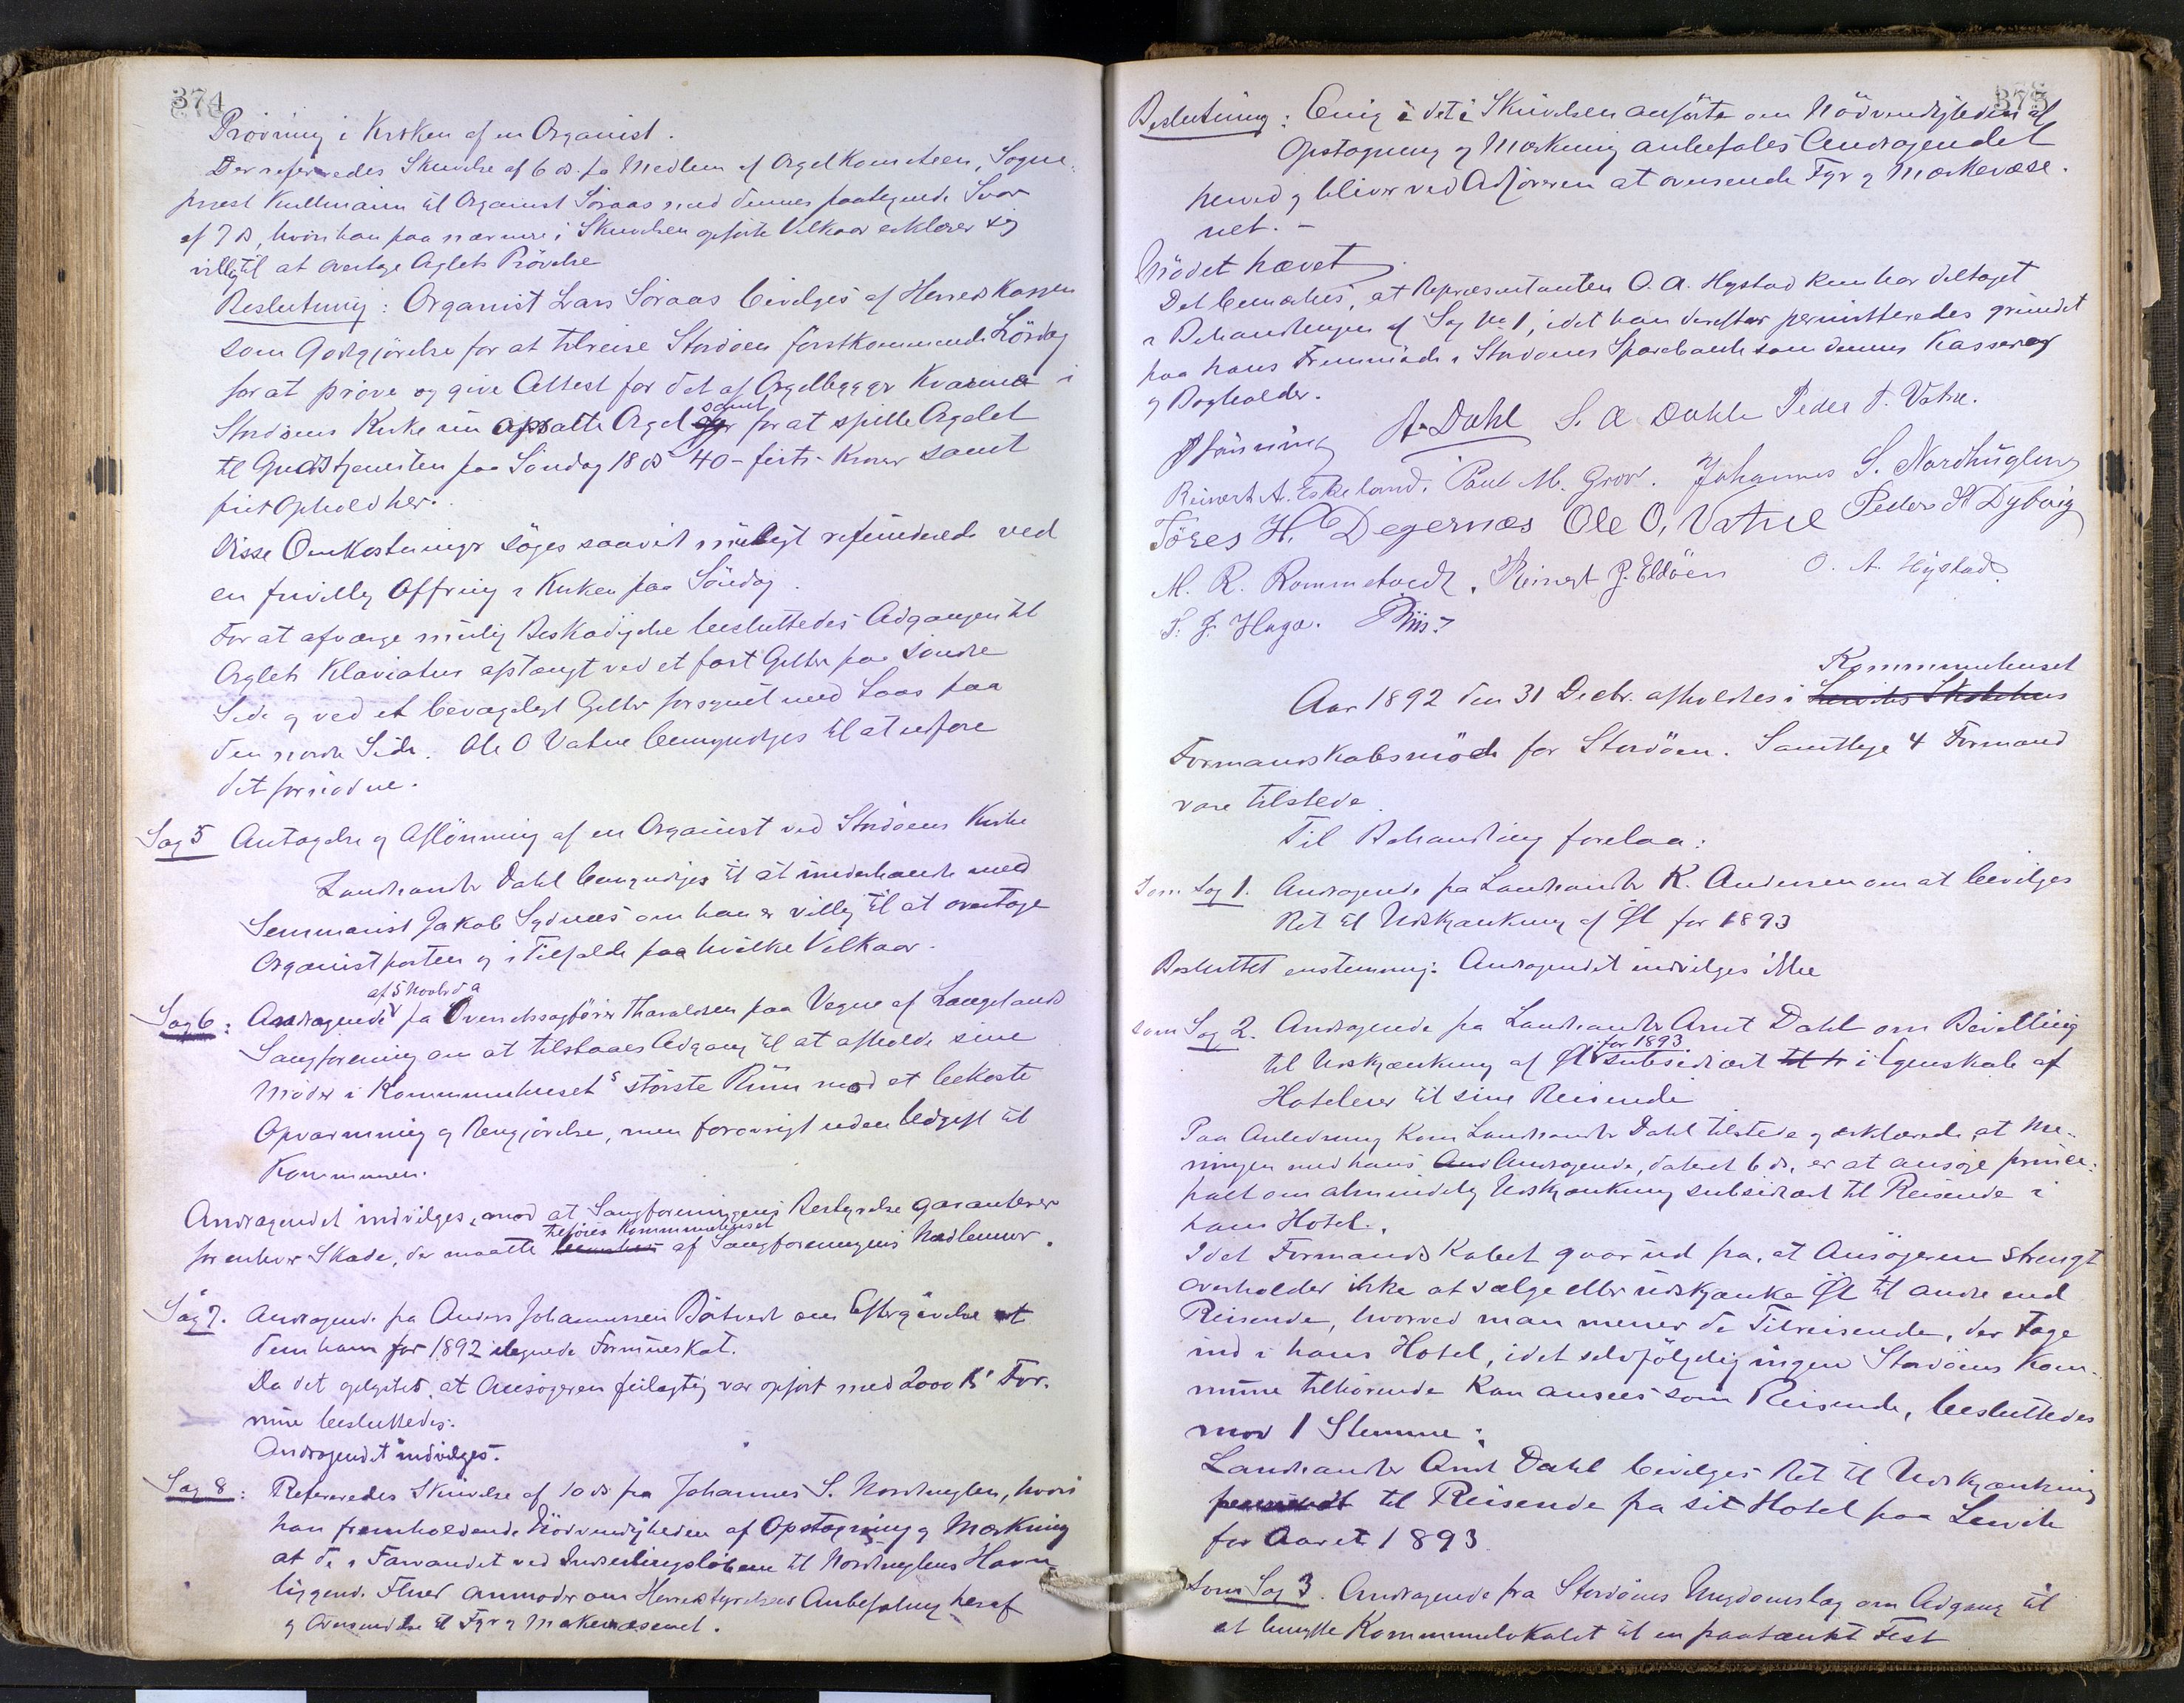 374
Prövning i Kirken af en Organist.
Der refereredes Skrivelse af 6 ds. fra Medlem af Orgelkomiteen, Sogne-
prest Kullmann til Organist Söraas med dennes paategnede Svar
af 7 ds, hvori han paa nærmere i Skrivelsen opförte Vilkaar erklærer sig
villig til at overtage Orglets Prövelse
Beslutning: Organist Lars Söraas bevilges af Herredskassen
som Godtgjörelse for at tilreise Stordöen förstkommende Lördag
for at pröve og give Attest for det af Orgelbygger Kvarme i
Stordöens Kirke nu opsatte Orgel samt for at spille Orgelet
til Gudstjenesten paa Söndag 18 ds 40 - firti - Kroner samt
frit Ophold her.
Disse Omkostninger söges saavidt muligt refunderede ved
en frivillig Offring i Kirken paa Söndag.
For at afværge mulig Beskadigelse besluttedes Adgangen til
Orglets Klaviatur afstængt ved et fast Gitter paa söndre
Side og ved et bevægeligt Gitter forsynet med Laas paa
den nordre Side. Ole O Vatne bemyndiges til at udföre
det fornödne.
Sag 5 Antagelse og Aflönning af en Organist ved Stordöens Kirke
Landhandler Dahl bemyndiges til at underhandle med
Seminarist Jakob Sydnæs om han er villig til at overtage
Organistposten og i Tilfælde paa hvilke Vilkaar.
af 5 Novbr d a
Sag 6: Andragende fra Overretssagförer Tharaldsen paa Vegne af Langelands
Sangforening om at tilstaaes Adgang til at afholde sine
Möder i Kommunehusets störste Rum mod at bekoste
Opvarmning og Rengjörelse, men forövrigt uden Udgift til
Kommunen.
Andragendet indvilges, mod at Sangforeningens Bestyrelse garanterer
for enhver Skade, der maatte tilföies Kommunehuset af Sangforeningens Medlemmer.
Sag 7. Andragende fra Anders Johannessen Båtvedt om Eftergivelse af
den ham for 1892 ilignede Formueskat.
Da det oplystes, at Ansögeren feilagtig var opfört med 2000 Kr For-
mue besluttedes:
Andragendet indvilges.
Sag 8: Refereredes Skrivelse af 10 ds fra Johannes S. Nordhuglen, hvori
han fremholdende Nödvendigheden af Opstagning og Mærkning
af de i Farvandet ved Indseilingslöbene til Nordhuglens Havn
liggende Fluer anmoder om Herredstyrelsens Anbefaling heraf
og Oversendelse til Fyr og Mærkevæsenet.
375
Beslutning: Enig i det i Skrivelsen anförte om Nödvendigheden af
Opstagning og Mærkning anbefales Andragendet
herved og bliver ved Ordföreren at oversende Fyr og Mærkevæse-
net. -
Mödet hævet
Det bemærkes, at Repræsentanten O. A. Hystad kun har deltaget
i Behandlingen af Sag No 1, idet han derefter permitteredes grundet
paa hans Fremmöde i Stordöens Sparebank som dennes Kasserer
og Bogholder.
A. Dahl S. A Dahle Peder T. Vatne.
Reinert A. Eskeland. Paul M. Grov. Johannes S. Nordhuglen
Töres H. Degernæs Ole O, Vatne Peder H Dybvig
M. R. Rommetvedt. Reinert J. Eldöen O. A. Hystad.
S. J. Haga. Riis.
Kommunehuset
Aar 1892 den 31 Decbr. afholdtes i Lerviks Skolehus
Formandskabsmöde for Stordöen. Samtlige 4 Formænd
vare tilstede.
Til Behandling forelaa:
Som Sag 1. Andragende fra Landhandler K. Andersen om at bevilges
Ret til Udskjænkning af Øl for 1893
Besluttet enstemmig: Andragendet indvilges ikke
som Sag 2. Andragende fra Landhandler Arnt Dahl om Bevilling
til Udskjænkning af Øl for 1893 subsidiært i Egenskab af
Hoteleier til sine Reisende
Paa Anledning kom Landhandler Dahl tilstede og erklærede, at Me-
ningen med hans And Andragende, dateret 6 ds, er at ansöge princi-
palt om almindelig Udskjænkning subsidiært til Reisende i
hans Hotel.
Idet Formandskabet gaar ud fra, at Ansögeren strengt
overholder ikke at sælge eller udskjænke Øl til andre end
Reisende, hvorved man mener de Tilreisende, der tage
ind i hans Hotel, idet selvfölgelig ingen Stordöens Kom-
mune tilhörende kan ansees som Reisende, besluttedes
mod 1 Stemme:
Landhandler Arnt Dahl bevilges Ret til Udskjænkning
til Reisende fra sit Hotel paa Lervik
for Aaret 1893
Som Sag 3. Andragende fra Stordöens Ungdomslag om Adgang til
at benytte Kommunelokalet til en paatænkt Fest